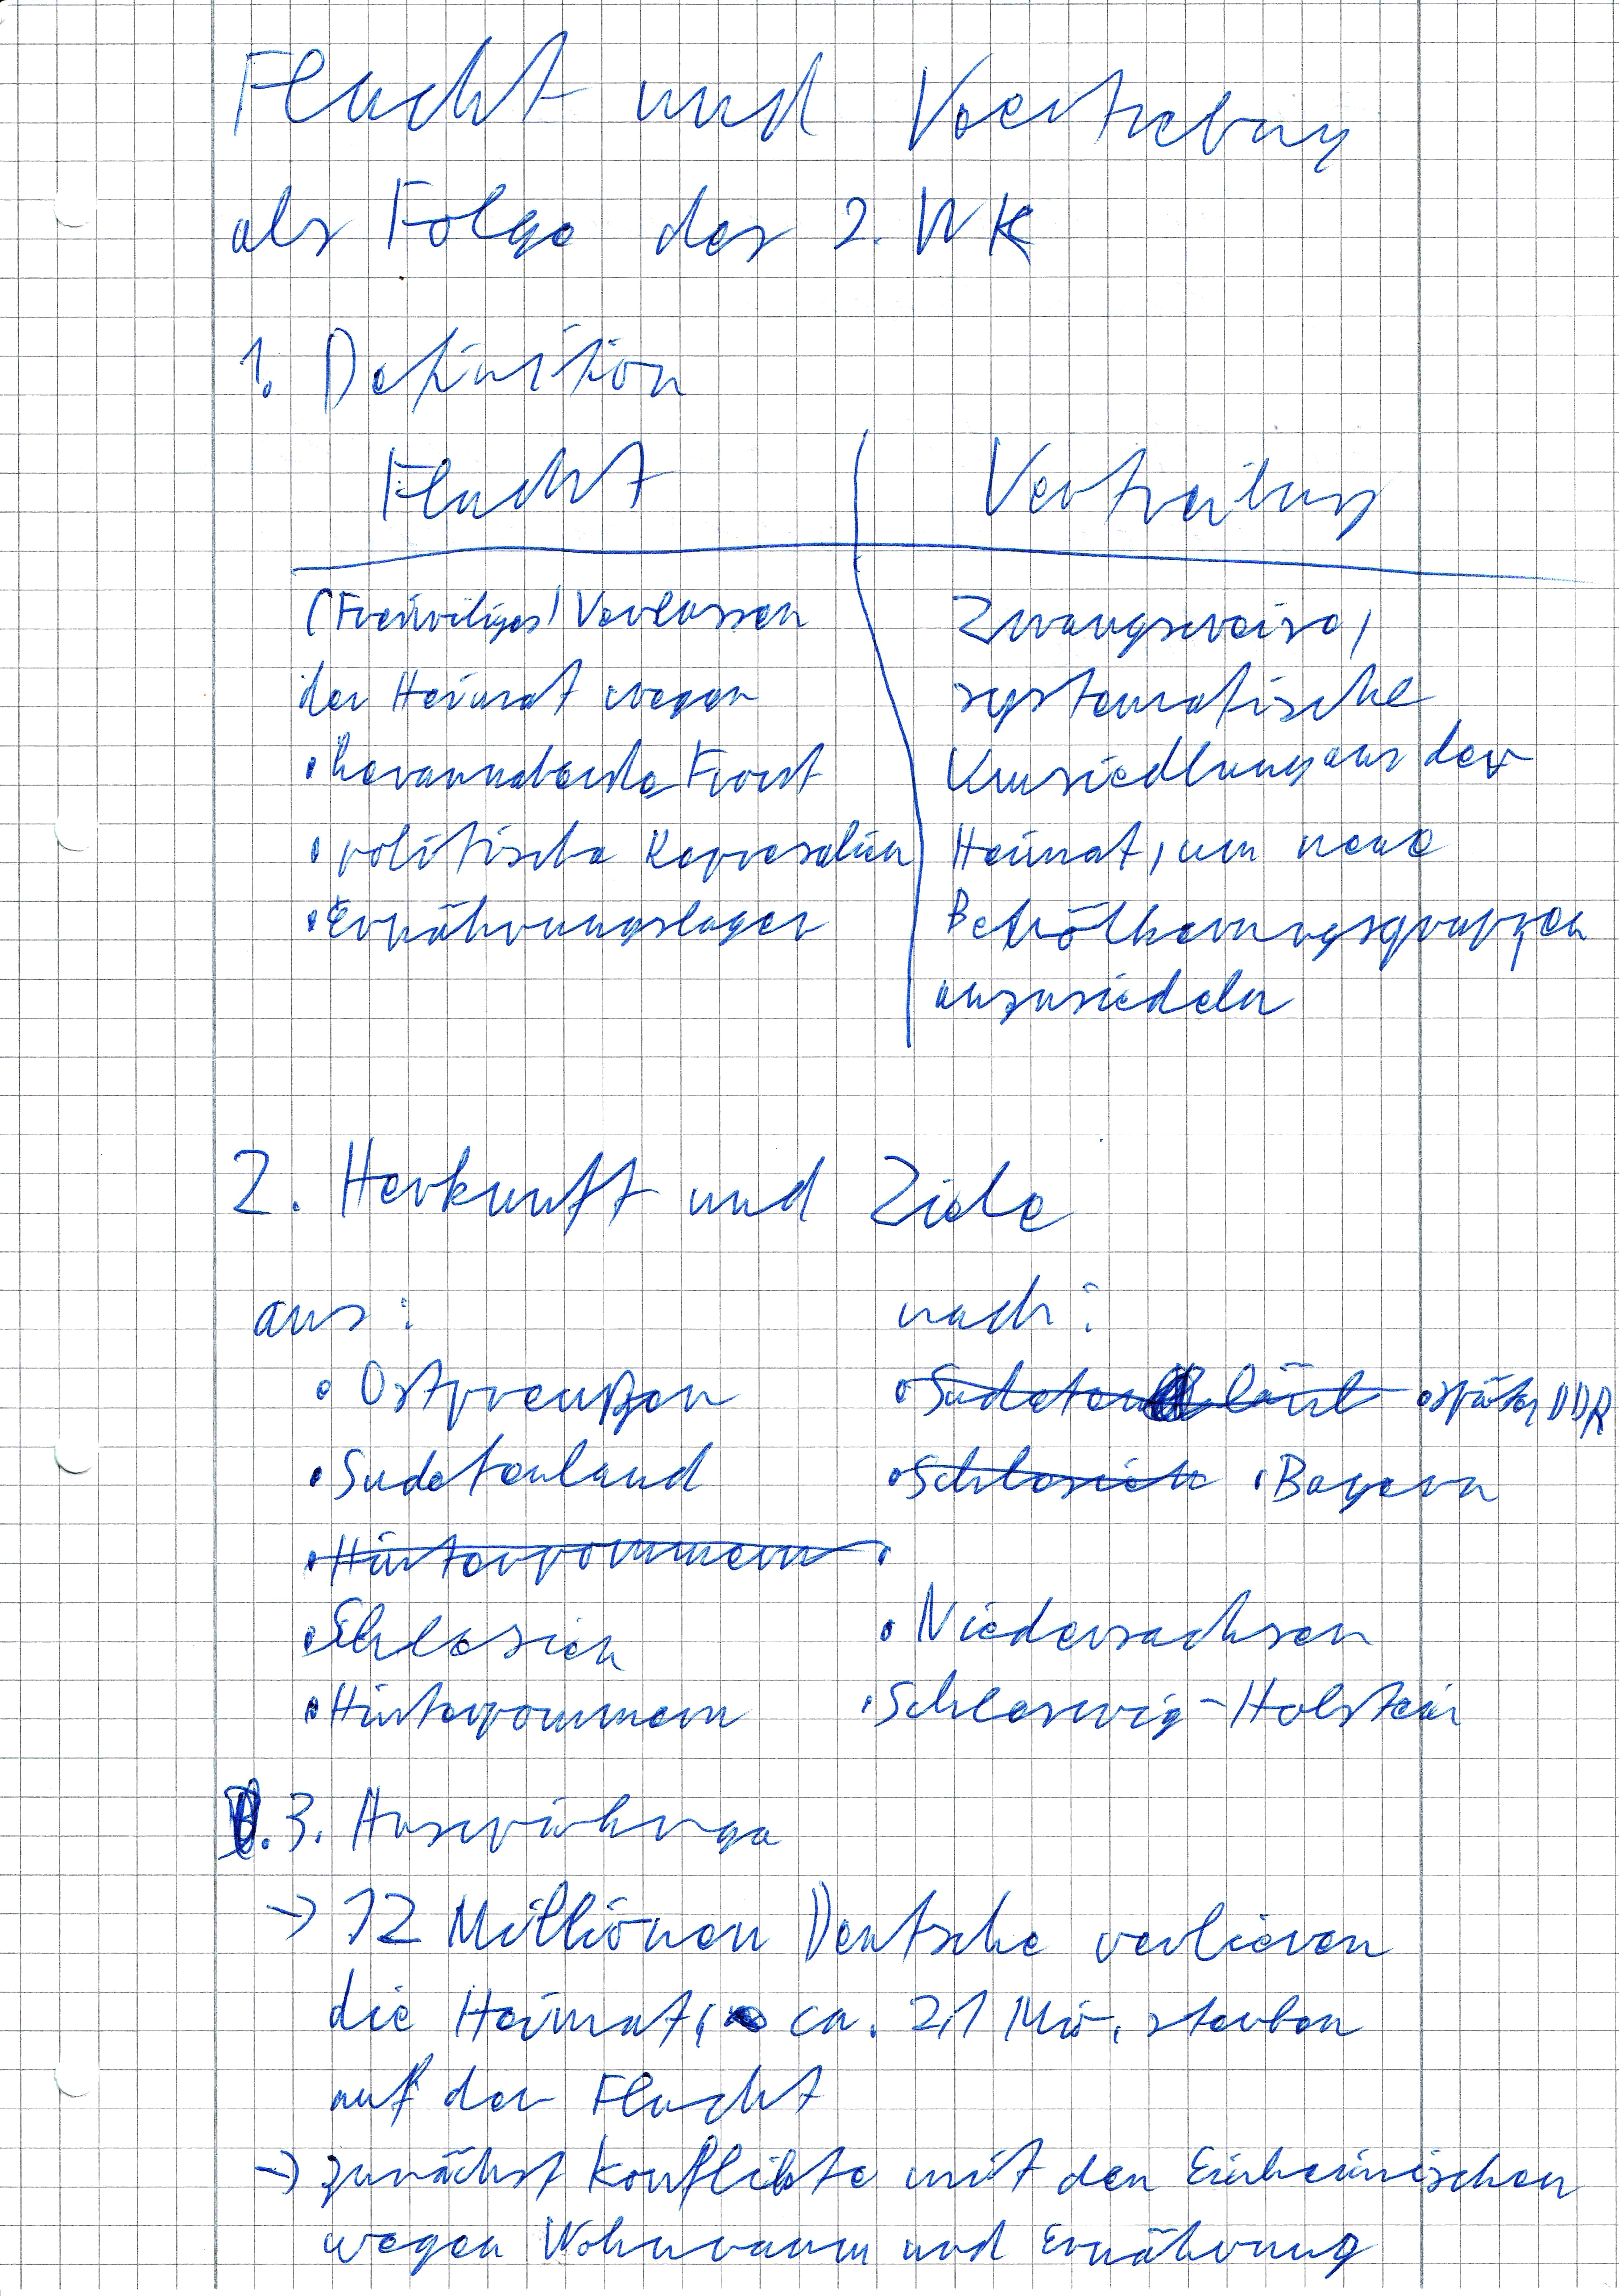 Flucht und Vertreibung
als Folge des 2. WK
1. Definition
Flucht Vertreibung
(Freiwilliges) Verlassen
der Heimat wegen
• herannahende Front
• politische Repressalien
• Ernährungslager
Zwangsweise,
systematische
Umsiedlung aus der
Heimat, um neue
Bevölkerungsgruppen
anzusiedeln
2. Herkunft und Ziele
aus: nach:
• Ostpreußen • später DDR
• Sudetenland • Schlesien • Bayern
• Hinterpommern •
• Schlesien • Niedersachsen
• Hinterpommern • Schleswig-Holstein
3. Auswirkunge
→ 12 Millionen Deutsche verlieren
die Heimat, ca. 2,1 Mio. sterben
auf der Flucht
→ zunächst Konflikte mit den Einheimischen
wegen Wohnraum und Ernährung